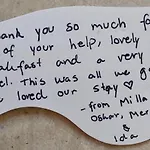 and you so much fo
of your help, lovely
kfast and a very
el. This was all we
loved our stay ♡
-from Milla
Oskar, Mer
&
Ida